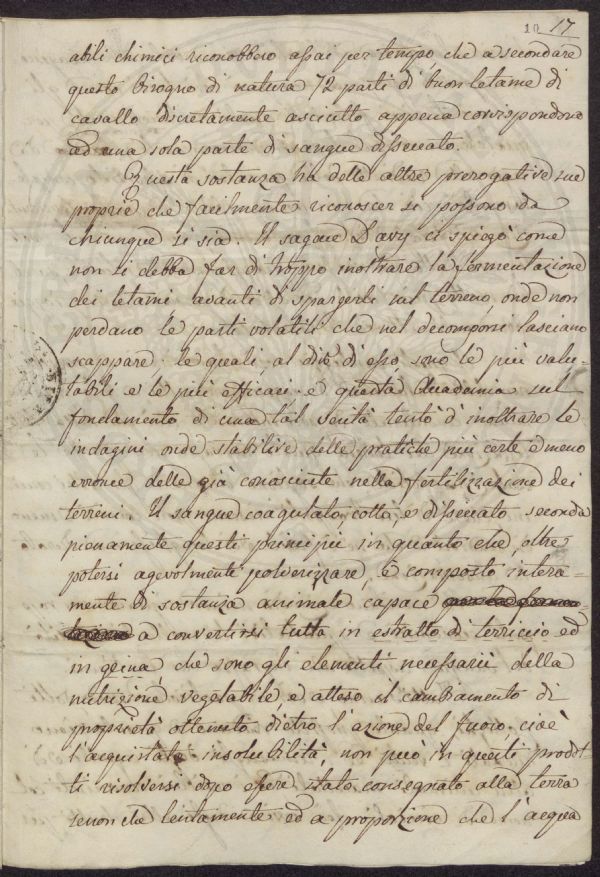 10 17
abili chimici riconobbero assai per tempo, che a secondare
questo bisogno di natura 72 parti di buon letame di
cavallo discretamente asciutto appena corrispondono
ad una sola parte di sangue disseccato.
Questa sostanza ha delle altre prerogative sue
proprie che facilmente riconoscer si possono da
chiunque si sia. Il sagace Davy ci spiegò come
non si debba far di troppo inoltrare la fermentazione
dei letami avanti di spargerli sul terreno, onde non
perdano le parti volatili che nel decomporsi lasciano
scappare, le quali, al dire di esso, sono le più valu-
tabili e le più efficaci: e questa Accademia sul
fondamento di una tal verità tentò d'inoltrare le
indagini onde stabilire delle pratiche più certe e meno
erronee delle già conosciute nella fertilizzazione dei
terreni. Il sangue coagulato, cotto, e disseccato seconda
pienamente questi principii in quanto che, oltre
potersi agevolmente polverizzare, è composto intera-
mente di sostanza animale capace
a convertirsi tutta in estratto di terriccio ed
in geina, che sono gli elementi necessarii della
nutrizione vegetabile, e atteso il cambiamento di
proprietà ottenuto dietro l'azione del fuoco, cioè
l'acquistata insolubilità, non può in questi prodot-
ti risolversi dopo essere stato consegnato alla terra
senon che lentamente ed a proporzione che l'acqua